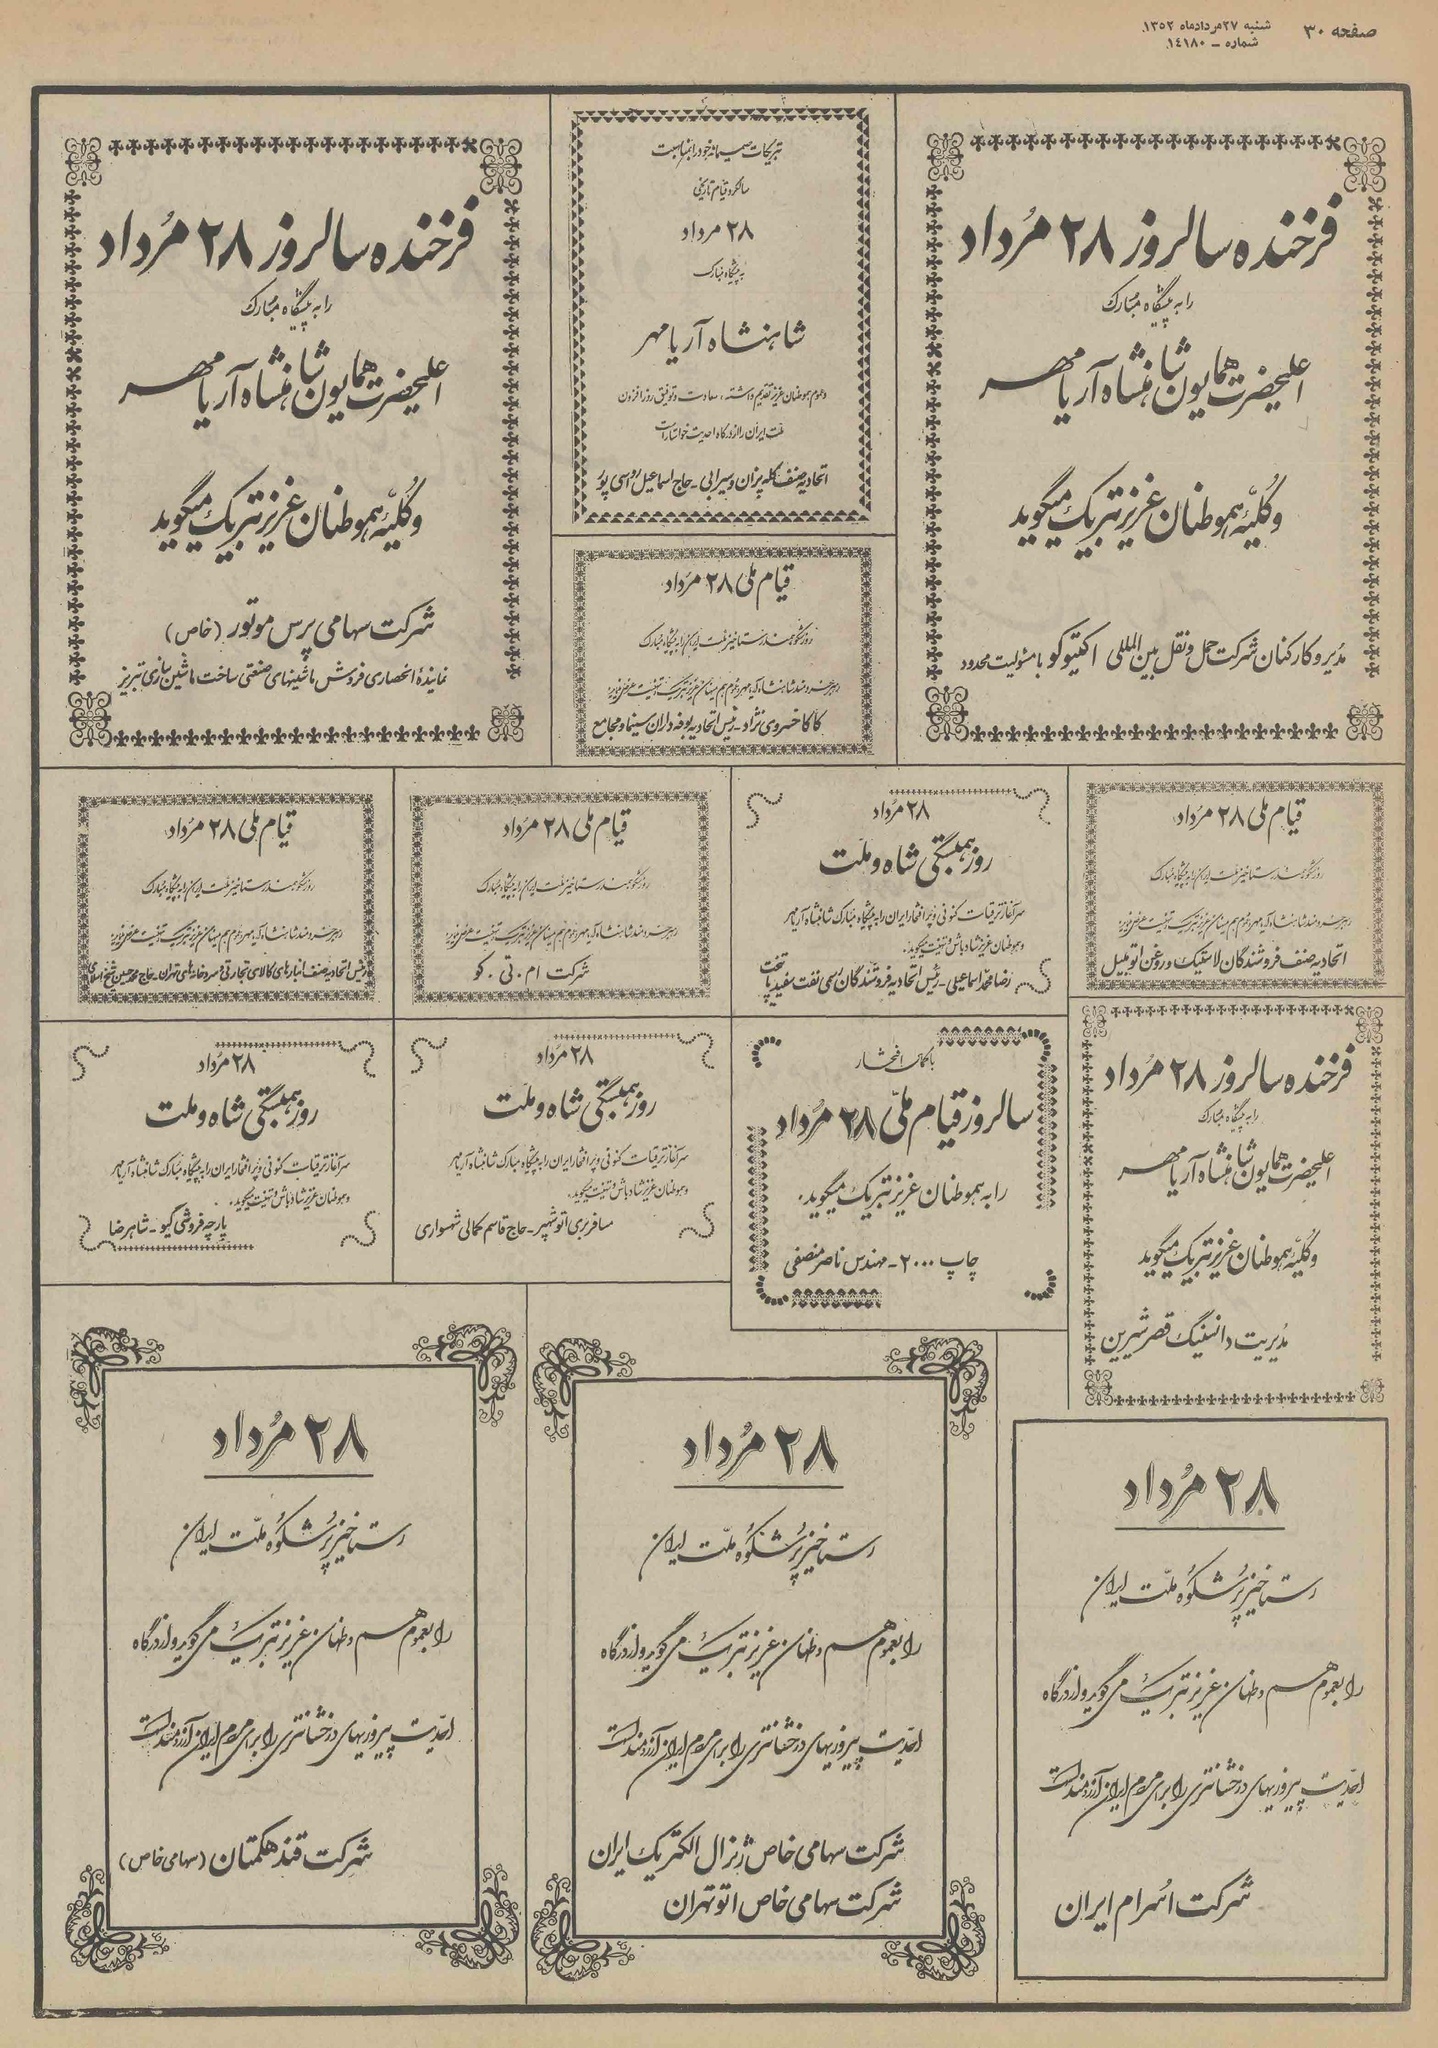 صفحه ۳۰
شنبه ۲۷ مردادماه ۱۳۵۲
شماره – ۱۴۱۸۰
فرخنده سالروز ۲۸ مُرداد
را به پیشگاه مبارک
اعلیحضرت همایون شاهنشاه آریامهر
و کلیهٔ هموطنان عزیز تبریک میگوید
مدیر و کارکنان شرکت حمل و نقل بین‌المللی اکتیوکو با مسئولیت محدود
تبریکات صمیمانه خود را بمناسبت
سالگرد قیام تاریخی
۲۸ مرداد
به پیشگاه مبارک
شاهنشاه آریامهر
و عموم هموطنان عزیز تقدیم داشته، سعادت و توفیق روزافزون
ملت ایران را از درگاه احدیت خواستار است
اتحادیه صنف کله پزان و سیرابی – حاج اسماعیل
قیام ملی ۲۸ مرداد
روز شکوهمند رستاخیز ملت ایران را به پیشگاه مبارک
رهبر خردمند شاهنشاه آریامهر و عموم هم میهنان عزیز تبریک و تهنیت عرض مینماید
کاکا خسروی نژاد – رئیس اتحادیه بوفه داران سینما و مجامع
فرخنده سالروز ۲۸ مُرداد
را به پیشگاه مبارک
اعلیحضرت همایون شاهنشاه آریامهر
و کلیهٔ هموطنان عزیز تبریک میگوید
شرکت سهامی پرس موتور (خاص)
نمایندهٔ انحصاری فروش ماشینهای صنعتی ساخت ماشین سازی تبریز
قیام ملی ۲۸ مرداد
روز شکوهمند رستاخیز ملت ایران را به پیشگاه مبارک
رهبر خردمند شاهنشاه آریامهر و عموم هم میهنان عزیز تبریک و تهنیت عرض مینماید
اتحادیه صنف فروشندگان لاستیک و روغن اتومبیل
۲۸ مرداد
روز همبستگی شاه و ملت
سرآغاز ترقیات کنونی و پر افتخار ایران را به پیشگاه مبارک شاهنشاه آریامهر
و هموطنان عزیز شادباش و تهنیت میگوید.
رضا محمد اسماعیلی – رئیس اتحادیه فروشندگان نفت سفید پایتخت
قیام ملی ۲۸ مرداد
روز شکوهمند رستاخیز ملت ایران را به پیشگاه مبارک
رهبر خردمند شاهنشاه آریامهر و عموم هم میهنان عزیز تبریک و تهنیت عرض مینماید
شرکت ام . تی . کو
قیام ملی ۲۸ مرداد
روز شکوهمند رستاخیز ملت ایران را به پیشگاه مبارک
رهبر خردمند شاهنشاه آریامهر و عموم هم میهنان عزیز تبریک و تهنیت عرض مینماید
رئیس اتحادیه صنف انبارهای کالاهای تجارتی و سردخانه‌های تهران – حاج محمد حسین
فرخنده سالروز ۲۸ مُرداد
را به پیشگاه مبارک
اعلیحضرت همایون شاهنشاه آریامهر
و کلیهٔ هموطنان عزیز تبریک میگوید
مدیریت دانسینگ قصر شیرین
با کمال افتخار
سالروز قیام ملّی ۲۸ مُرداد
را به هموطنان عزیز تبریک میگوید.
چاپ ۲۰۰۰ – مهندس ناصر منصفی
۲۸ مرداد
روز همبستگی شاه و ملت
سرآغاز ترقیات کنونی و پر افتخار ایران را به پیشگاه مبارک شاهنشاه آریامهر
و هموطنان عزیز شادباش و تهنیت میگوید.
مسافربری اتوشهپر – حاج قاسم کمالی شهسواری
۲۸ مرداد
روز همبستگی شاه و ملت
سرآغاز ترقیات کنونی و پر افتخار ایران را به پیشگاه مبارک شاهنشاه آریامهر
و هموطنان عزیز شادباش و تهنیت میگوید.
پارچه فروشی گیو – شاهرضا
۲۸ مُرداد
رستاخیز پُرشکوه ملّت ایران
را بعموم هم وطنان عزیز تبریک می گوید و از درگاه
احدیت پیروزیهای درخشانتری را برای مردم ایران آرزومند است
شرکت اُسرام ایران
۲۸ مُرداد
رستاخیز پُرشکوه ملّت ایران
را بعموم هم وطنان عزیز تبریک می گوید و از درگاه
احدیت پیروزیهای درخشانتری را برای مردم ایران آرزومند است
شرکت سهامی خاص ژنرال الکتریک ایران
شرکت سهامی خاص اتو تهران
۲۸ مُرداد
رستاخیز پُرشکوه ملّت ایران
را بعموم هم وطنان عزیز تبریک می گوید و از درگاه
احدیت پیروزیهای درخشانتری را برای مردم ایران آرزومند است
شرکت قند هکمتان (سهامی خاص)